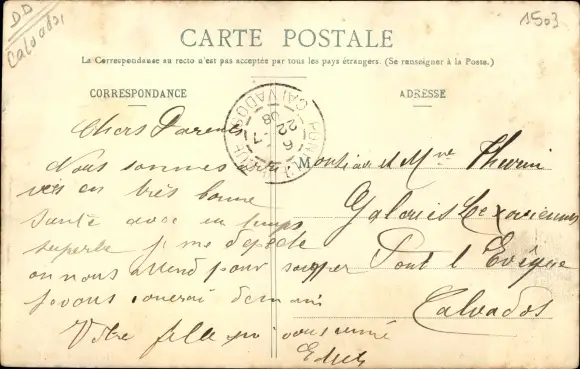 DD
Calvados
1503
CARTE POSTALE
La Correspondance au recto n'est pas acceptée par tous les pays étrangers. (Se renseigner à la Poste.)
CORRESPONDANCE
ADRESSE
CALVADOS
22 08
Chers Parents
Nous sommes
très bonne
santé avec un temps
superbe je me dépêche
on nous attend pour souper
je vous demain
Votre fille qui vous
Monsieur et Mme
Galeries
Pont l Evêque
Calvados